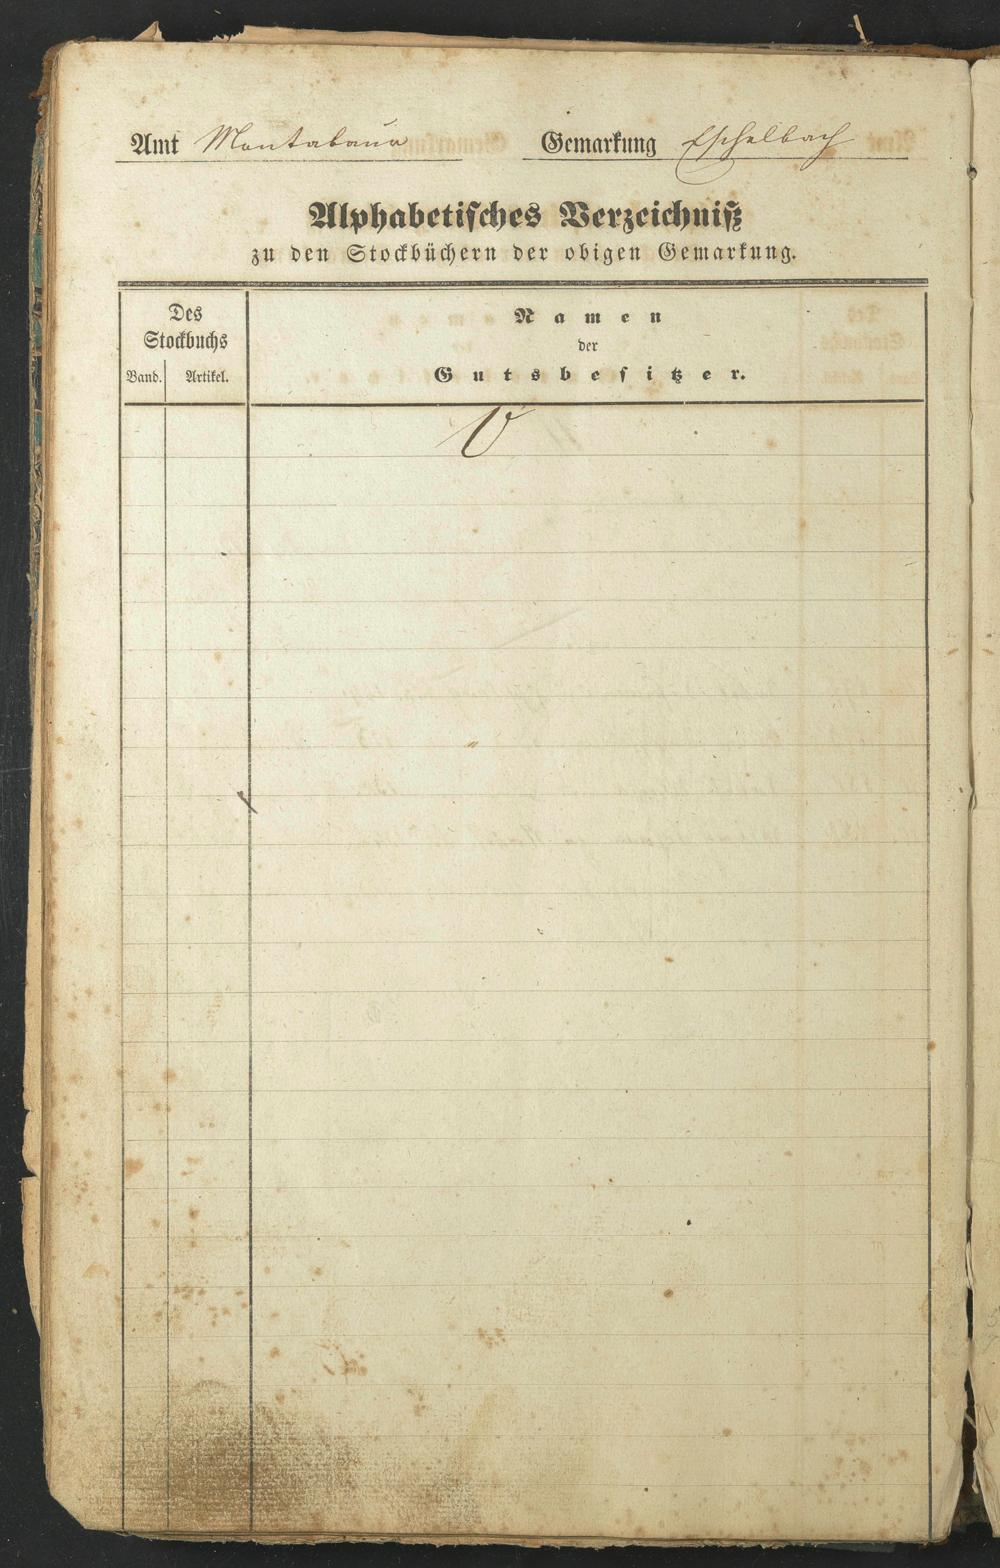 Amt Montabaur Gemarkung Eschelbach
Alphabetisches Verzeichniß
zu den Stockbüchern der obigen Gemarkung.
Des
Stockbuchs
Band. Artikel.
Namen
der
Gutsbesitzer.